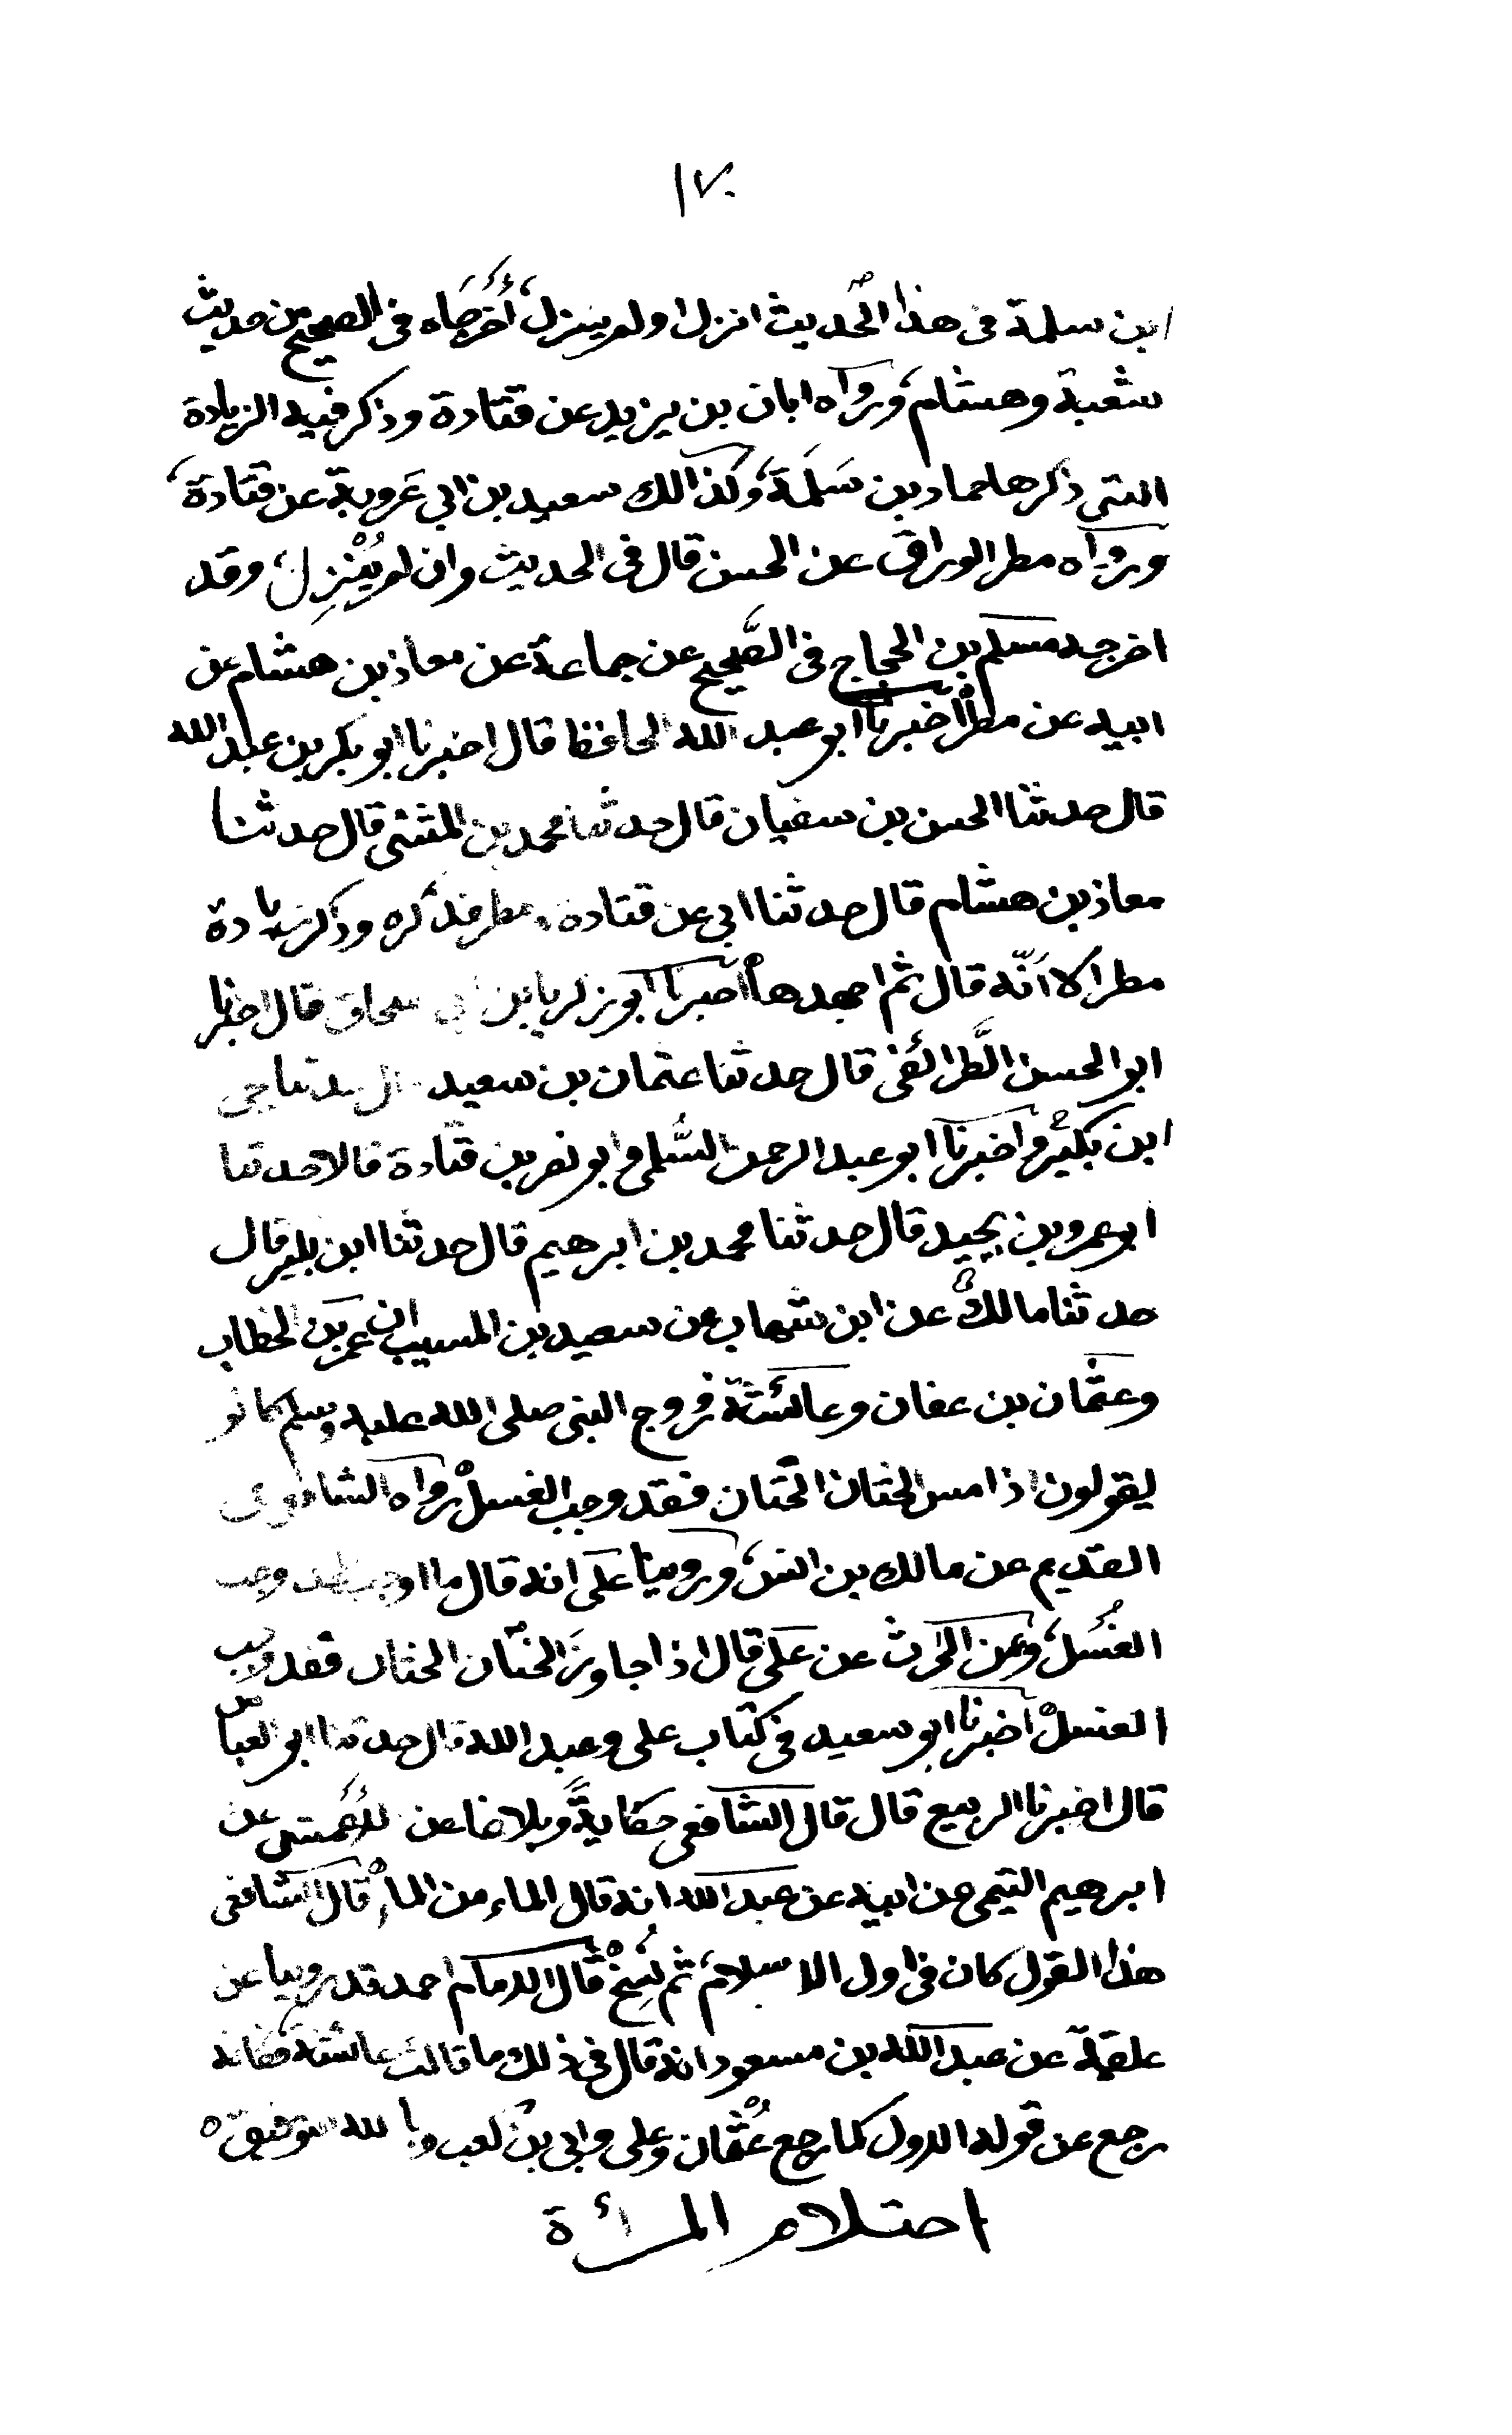 ١٧٠
ابن سلمة فى هذا الحديث انزل او لم ينزل، أخرجاه فى الصحيح من حديث
شعبة وهشام، ورواه ابان بن يزيد عن قتادة وذكر فيه الزيادة
التى ذكرها حماد بن سَلَمَة، وكذالك سعيد بن ابي عَروبة عن قتادة،
ورواه مطر الوراق عن الحسن قال فى الحديث وان لم يُنْزِل، وقد
اخرجه مسلم بن الحجاج فى الصَّحيح عن جماعة عن معاذ بن هشام عن
ابيه عن مطر اخبرنا ابو عبد الله الحافظ قال اخبرنا ابو بكر بن عبد الله
قال حدثنا الحسن بن سفيان قال حدثنا محمد بن المثنى قال حدثنا
معاذ بن هشام قال حدثنا ابي عن قتادة ومطر فذكره وذكر زيادة
مطر الا انّه قال ثم اجهدها اخبرنا ابو زكريا بن ابي اسحاق قال اخبرنا
ابو الحسن الطَّرائفى قال حدثنا عثمان بن سعيد قال حدثنا يحيى
ابن بكير واخبرنا ابو عبد الرحمن السُّلمى وابو نصر بن قتادة قالا حدثنا
ابو عمرو بن نجيد قال حدثنا محمد بن ابرهيم قال حدثنا ابن بكير قال
حدثنا مالك عن ابن شهاب عن سعيد بن المسيب ان عمر بن الخطاب
وعثمان بن عفان وعائشة زوج النبى صلى الله عليه وسلم كانو
يقولون اذا مس الختان الختان فقد وجب الغسل رواه الشافعى فى
القديم عن مالك بن انس، وروينا عن على انه قال ما اوجب الحد وجب
الغُسل، وعن الحٰرث عن على قال اذا جاوزَ الختان الختان فقد وجب
الغسل اخبرنا ابو سعيد فى كتاب على وعبد الله قال حدثنا ابو العباس
قال اخبرنا الربيع قال قال الشافعى حكايةً وبلاغا عن الأعمش عن
ابرهيم التيمى عن ابيه عن عبد الله انه قال الماء من الماء قال الشافعى
هذا القول كان فى اول الاسلام، ثم نُسِخَ قال الامام احمد قد روينا عن
علقمة عن عبد الله بن مسعود انه قال فى ذلك ما قالت عائشة فكانه
رجع عن قوله الاول كما رجع عُثمان وعلى وابى بن كعب وبالله التوفيق ه
احتلام المرأة